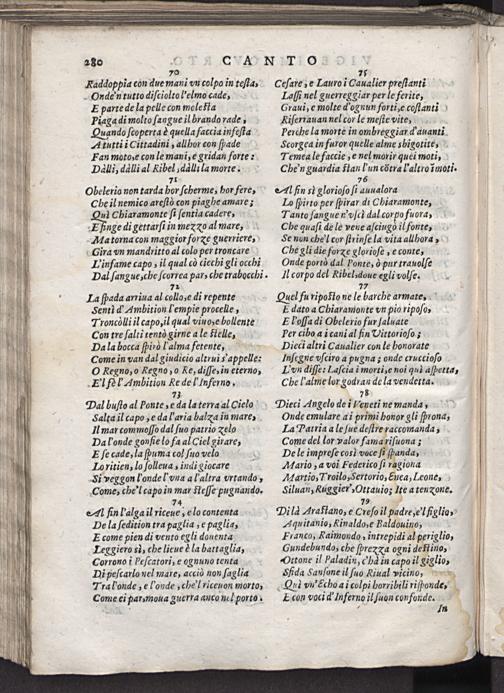 280
CANTO
70
Raddoppia con due mani vn colpo in testa,
Onde'n tutto disciolto l'elmo cade,
E parte de la pelle con molestia
Piaga di molto sangue il brando rade,
Quando scoperta è quella faccia infesta
A tutti i Cittadini, allhor con spade
Fan moto, e con le mani, e gridan forte:
Dàlli, dàlli al Ribel, dàlli la morte.
71
Obelerio non tarda hor scherme, hor fere,
Che il nemico arestò con piaghe amare;
Quì Chiaramonte si sentia cadere,
E finge di gettarsi in mezzo al mare,
Ma torna con maggior forze guerriere,
Gira vn mandritto al colo per troncare
L'infame capo, il qual cò ciechi gli occhi
Dal sangue, che scorrea par, che trabocchi.
72
La spada arriua al collo, e di repente
Sentì d'Ambition l'empie procelle,
Troncòlli il capo, il qual viuo, e bollente
Con tre salti tentò girne a le stelle,
Da la bocca spirò l'alma fetente,
Come in van dal giudicio altrui s'appelle:
O Regno, o Regno, o Re, disse, in eterno,
E'l fè l'Ambition Re de l'Inferno,
73
Dal busto al Ponte, e da la terra al Cielo
Salta il capo, e da l'aria balza in mare,
Il mar commosso dal suo patrio zelo
Da l'onde gonfie lo fa al Ciel girare,
E se cade, la spuma col suo velo
Lo ritien, lo solleua, indi giocare
Si veggon l'onde l'vna a l'altra vrtando,
Come, che'l capo in mar stesse pugnando.
74
Al fin l'alga il riceue, e lo contenta
De la sedition tra paglia, e paglia,
E come pien di vento egli douenta
Leggiero sì, che lieue è la battaglia,
Corrono i Pescatori, e ognuno tenta
Di pescarlo nel mare, acciò non saglia
Tra l'onde, e l'onde, che'l riceuon morto,
Come ei par, moua guerra anco nel porto.
75
Cesare, e Lauro i Caualier prestanti
Lassi nel guerreggiar per le ferite,
Graui, e molte d'ognun forti, e costanti
Riserrauan nel cor le meste vite,
Perche la morte in ombreggiar d'auanti
Scorgea in furor quelle alme sbigotite,
Temea le faccie, e nel morir quei moti,
Che'n guardia stan l'un cõtra l'altro ĩmoti.
76
Al fin sì glorioso si auualora
Lo spirto per spirar di Chiaramonte,
Tanto sangue n'vscì dal corpo fuora,
Che quasi de le vene asciugò il fonte,
Se non che'l cor strinse la vita allhora,
Che gli die forze gloriose, e conte,
Onde portò dal Ponte, ò pur trauolse
Il corpo del Ribel, doue egli volse.
77
Quel fu riposto ne le barche armate,
E dato a Chiaramonte vn pio riposo,
E l'ossa di Obelerio fur saluate
Per cibo a i cani al fin Vittorioso;
Dieci altri Caualier con le honorate
Insegne vsciro a pugna; onde cruccioso
L'vn disse: Lascia i morti, e noi quì aspetta,
Che l'alme lor godran de la vendetta.
78
Dieci Angelo de i Veneti ne manda,
Onde emulare a i primi honor gli sprona,
La Patria a le sue destre raccomanda,
Come del lor valor fama risuona;
De le imprese così voce si spanda,
Mario, a voi Federico si ragiona
Martio, Troilo, Sertorio, Enea, Leone,
Siluan, Ruggier', Ottauio; Ite a tenzone.
79
Di là Arastano, e Creso il padre, e'l figlio,
Aquitanio, Rinaldo, e Baldouino,
Franco, Raimondo, intrepidi al periglio,
Gundebundo, che sprezza ogni destino,
Ottone il Paladin, c'hà in capo il giglio,
Sfida Sansone il suo Riual vicino,
Quì vn'Echo a i colpi horribili risponde,
E con voci d'Inferno il suon confonde.
In